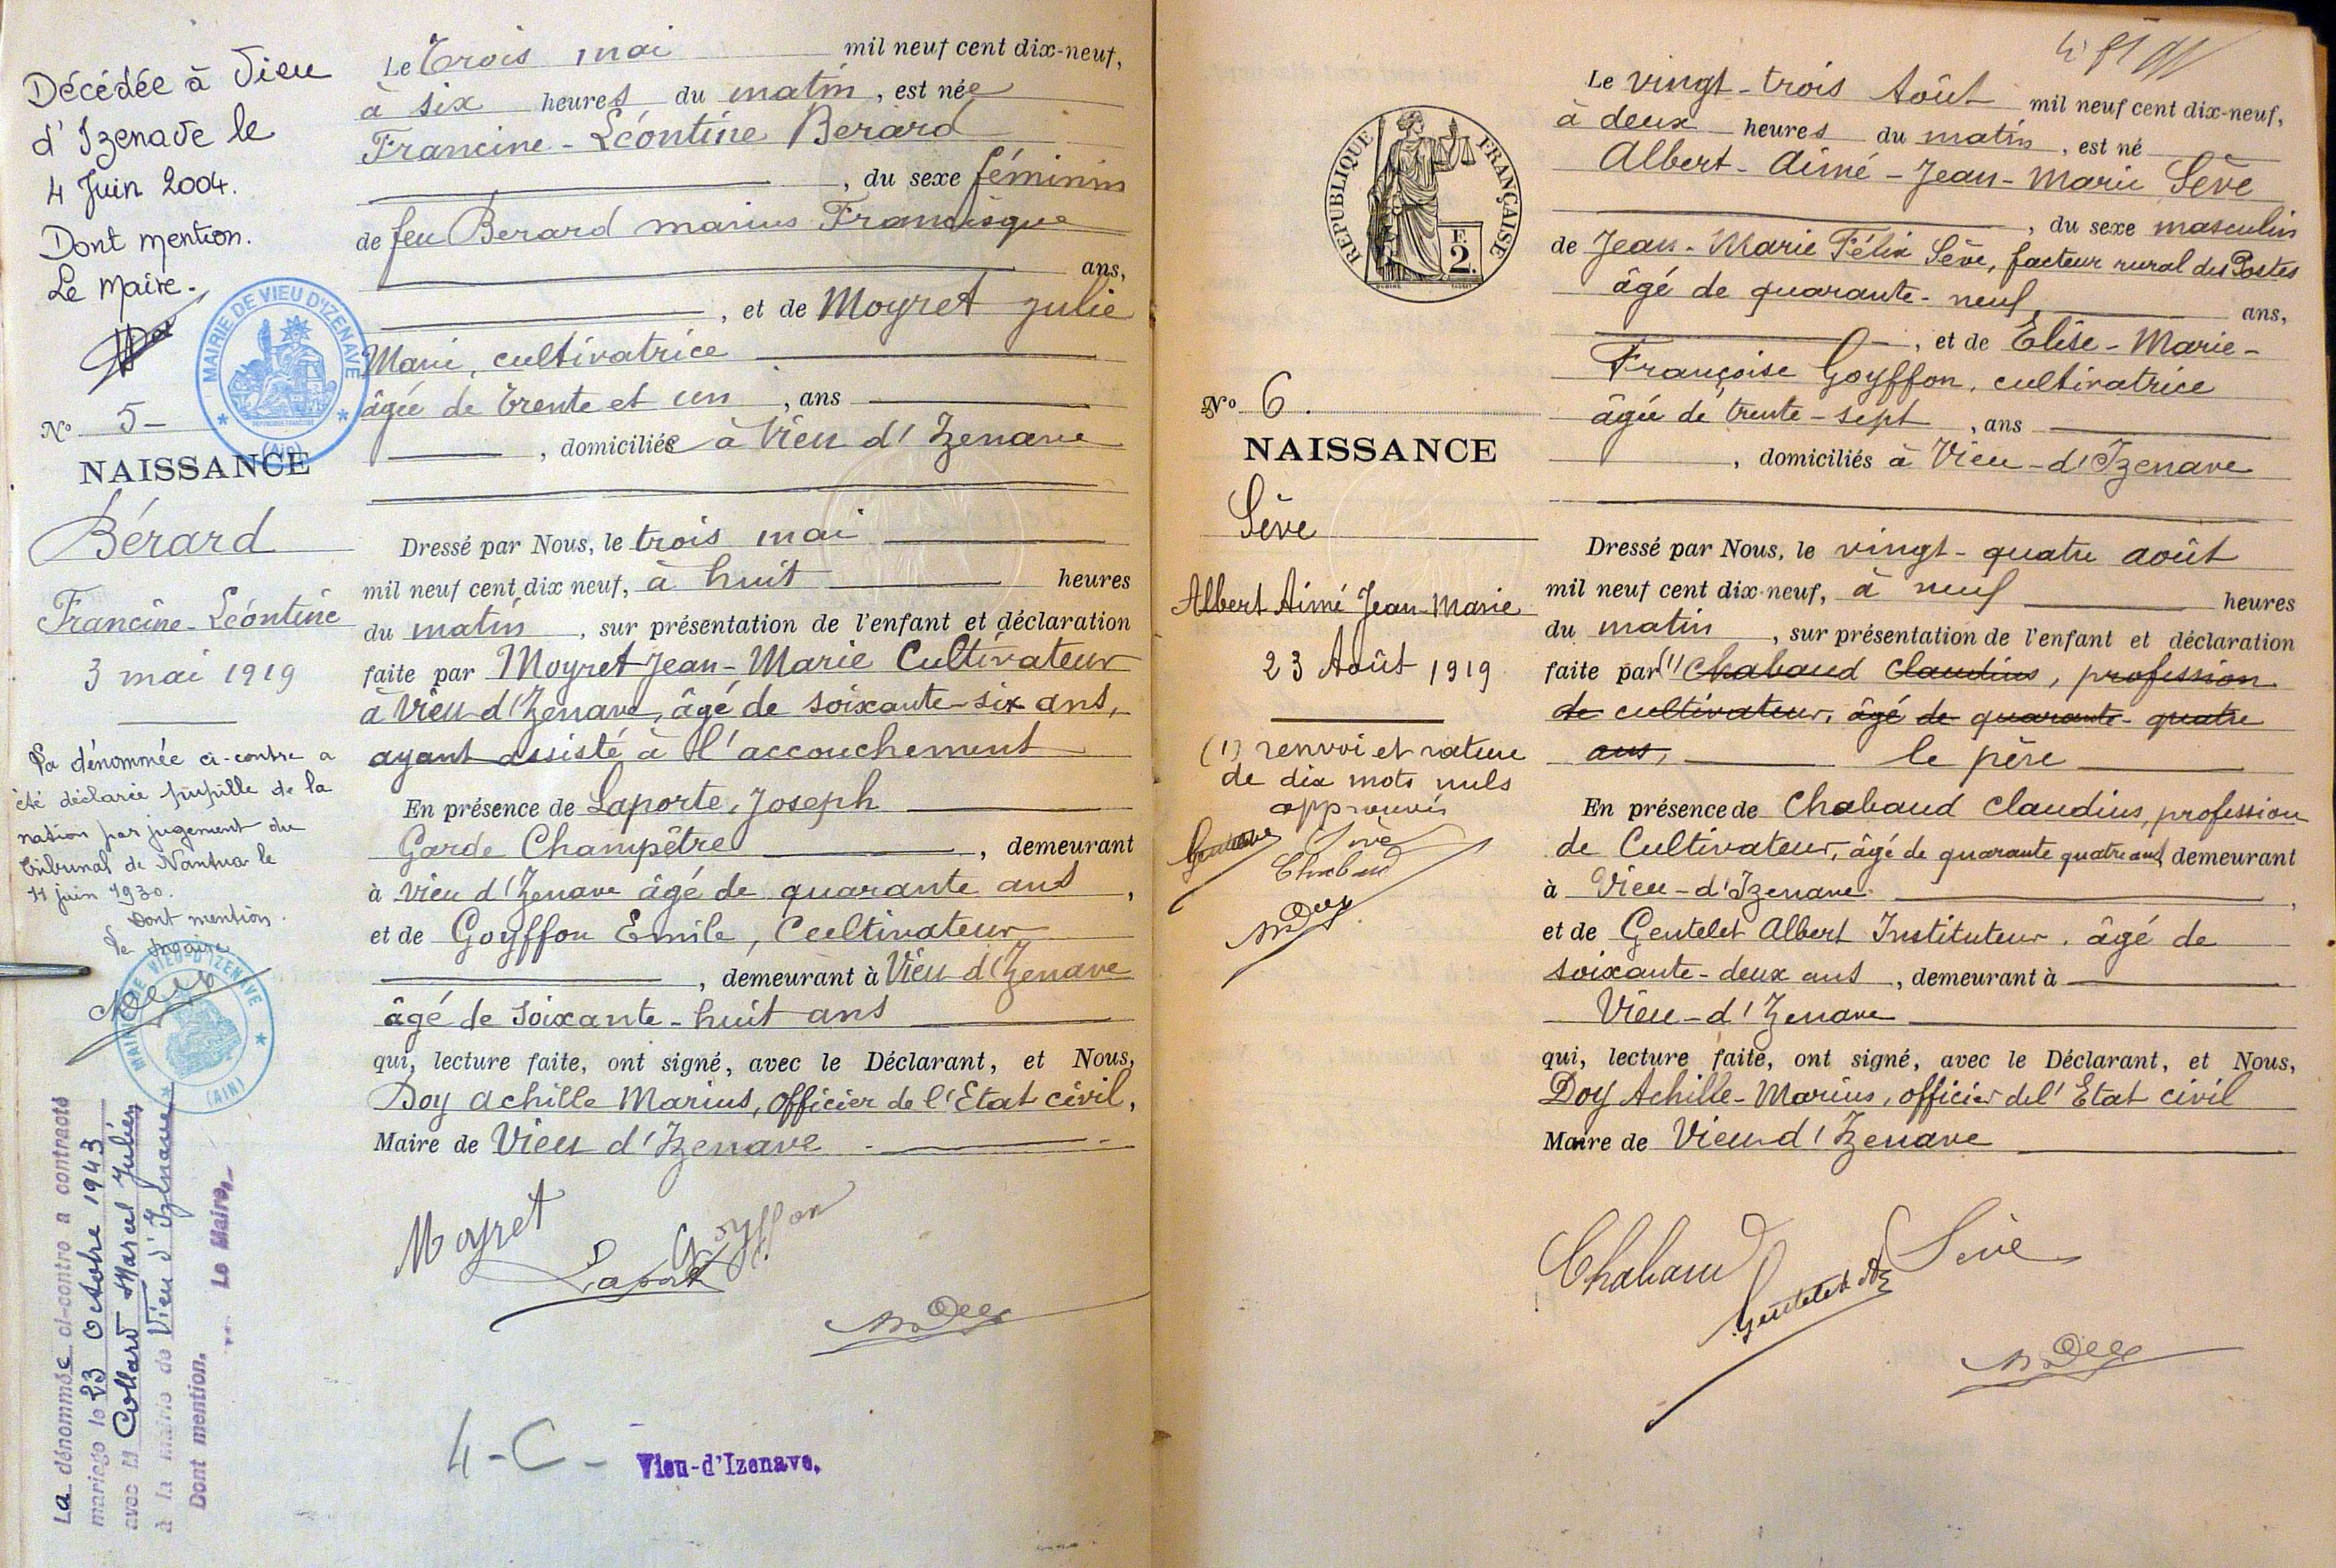 Décédée à Vieu
d'Izenave le
4 Juin 2004.
Dont mention.
Le Maire.
MAIRIE DE VIEU D'IZENAVE
(Ain)
N° 5-
NAISSANCE
Bérard
Francine-Léontine
3 mai 1919
La dénommée ci-contre a
été déclarée pupille de la
nation par jugement du
tribunal de Nantua le
11 juin 1930.
Dont mention.
Le Maire
MAIRIE DE VIEU-D'IZENAVE
(AIN)
La dénommée ci-contre a contracté
mariage le 23 Octobre 1943
avec M Collard Marcel Julien
à la mairie de Vieu d'Izenave
Dont mention. Le Maire,
Le trois mai mil neuf cent dix-neuf,
à six heures du matin, est née
Francine-Léontine Berard
, du sexe féminin
de feu Berard marius Francisque
ans,
, et de Moyret Julie
Marie, cultivatrice
âgée de trente et un, ans
, domiciliée à Vieu d'Izenave
Dressé par Nous, le trois mai
mil neuf cent dix neuf, à huit heures
du matin, sur présentation de l'enfant et déclaration
faite par Moyret Jean-Marie Cultivateur
à Vieu d'Izenave, âgé de soixante-six ans,
ayant assisté à l'accouchement
En présence de Laporte, Joseph
Garde Champêtre, demeurant
à Vieu d'Izenave âgé de quarante ans,
et de Goyffon Emile, Cultivateur
, demeurant à Vieu d'Izenave
âgé de soixante-huit ans
qui, lecture faite, ont signé, avec le Déclarant, et Nous,
Doy Achille Marius, officier de l'Etat civil,
Maire de Vieu d'Izenave
Moyret
Goyffon
Laporte
M Doy
4-C-
Vieu-d'Izenave.
RÉPUBLIQUE FRANÇAISE
F.
2.
N° 6.
NAISSANCE
Sève
Albert Aimé Jean-Marie
23 Août 1919
(1) renvoi et rature
de dix mots nuls
approuvés
Sève
Chabaud
M Doy
Le vingt-trois Août mil neuf cent dix-neuf,
à deux heures du matin, est né
Albert-Aimé-Jean-Marie Sève
, du sexe masculin
de Jean-Marie Félix Sève, facteur rural des Postes
âgé de quarante-neuf ans,
, et de Elise-Marie-
Françoise Goyffon, cultivatrice
âgée de trente-sept, ans
, domiciliés à Vieu-d'Izenave
Dressé par Nous, le vingt-quatre août
mil neuf cent dix-neuf, à neuf heures
du matin, sur présentation de l'enfant et déclaration
faite par (1) Chabaud Claudius, profession
de cultivateur, âgé de quarante-quatre
ans, le père
En présence de Chabaud Claudius, profession
de Cultivateur, âgé de quarante quatre ans, demeurant
à Vieu-d'Izenave,
et de Gentelet Albert Instituteur, âgé de
soixante-deux ans, demeurant à
Vieu-d'Izenave
qui, lecture faite, ont signé, avec le Déclarant, et Nous,
Doy Achille-Marius, officier de l'Etat civil
Maire de Vieu d'Izenave
Chabaud
Gentelet
Sève
M Doy